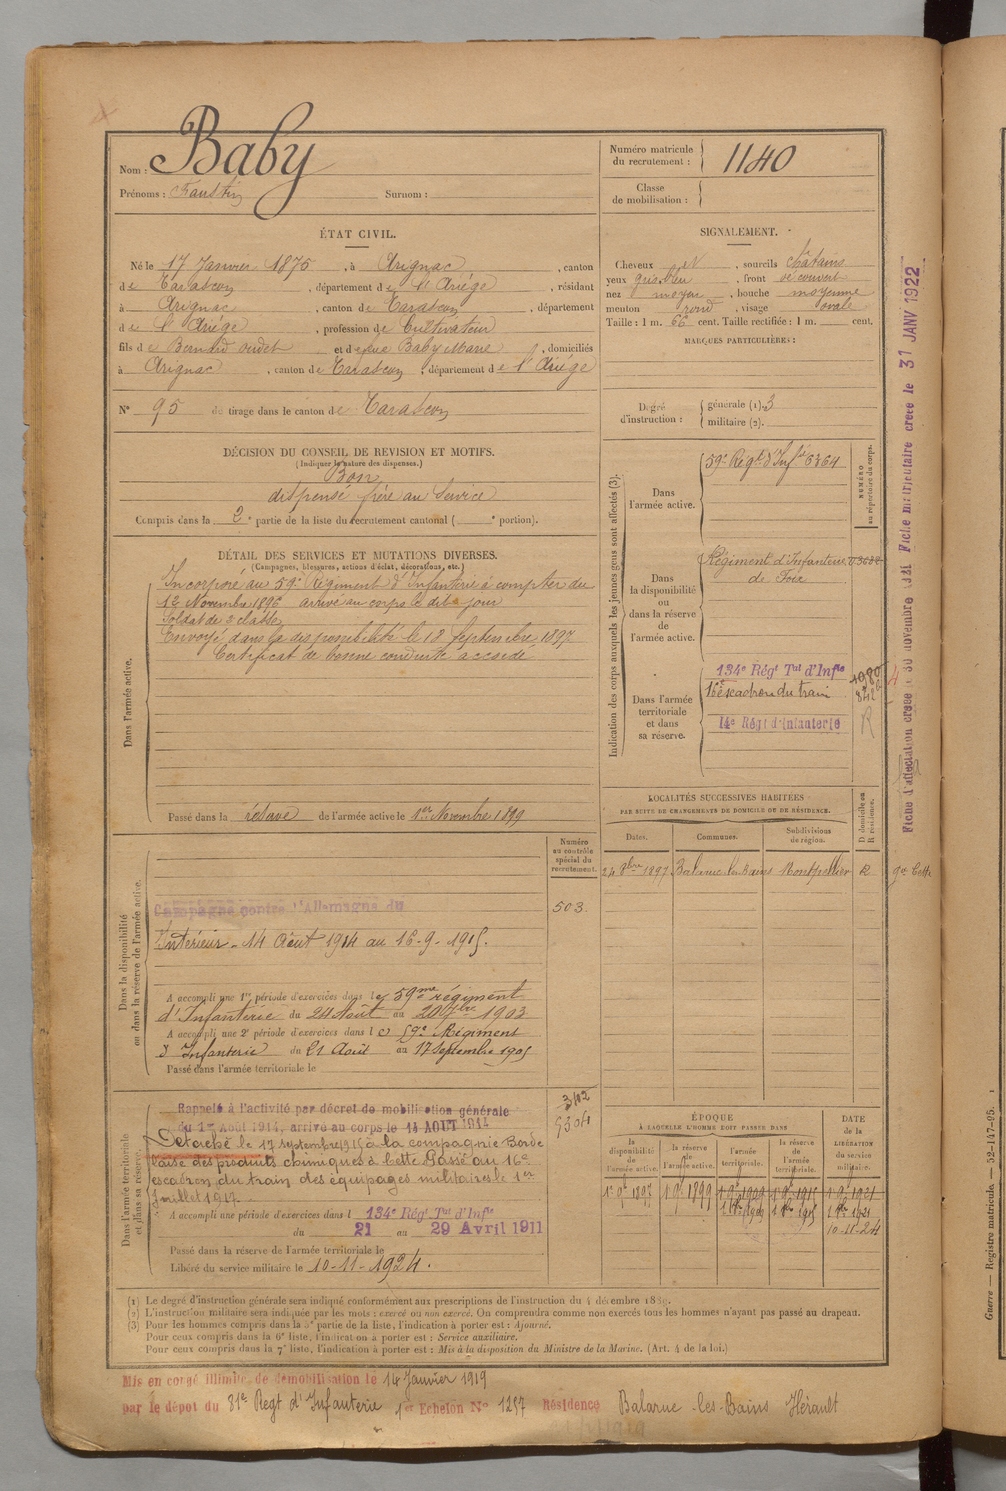 Nom : Baby
Prénoms : Faustin Surnom :
Numéro matricule du recrutement : 1140
Classe de mobilisation :
ÉTAT CIVIL.
Né le 17 Janvier 1875, à Arignac, canton
de Tarascon, département de l'Ariége, résidant
à Arignac, canton de Tarascon, département
de l'Ariége, profession de Cultivateur
fils de Bernard Oudet et de Baby Marie, domiciliés
à Arignac, canton de Tarascon, département de l'Ariége
N° 95 de tirage dans le canton de Tarascon
SIGNALEMENT.
Cheveux et, sourcils châtains
yeux gris bleu, front découvert
nez moyen, bouche moyenne
menton rond, visage ovale
Taille : 1 m. 66 cent. Taille rectifiée : 1 m. cent.
MARQUES PARTICULIÈRES :
Degré d'instruction : générale (1). 3
militaire (2).
DÉCISION DU CONSEIL DE REVISION ET MOTIFS.
(Indiquer la nature des dispenses.)
Bon
dispensé frère au Service
Compris dans la 2e partie de la liste du recrutement cantonal ( e portion).
DÉTAIL DES SERVICES ET MUTATIONS DIVERSES.
(Campagnes, blessures, actions d'éclat, décorations, etc.)
Dans l'armée active.
Incorporé au 59e Régiment d'Infanterie à compter du
12 Novembre 1896 arrivé au corps le dit jour
Soldat de 2 classe
Envoyé dans la disponibilité le 18 Septembre 1897
Certificat de bonne conduite accordé
Passé dans la réserve de l'armée active le 1er Novembre 1899
Indication des corps auxquels les jeunes gens sont affectés (3).
NUMÉRO au répertoire du corps.
Dans l'armée active.
59e Régt d'Infie 6364
Dans la disponibilité ou dans la réserve de l'armée active.
Régiment d'Infanterie
de Foix
Dans l'armée territoriale et dans sa réserve.
134e Régt Tal d'Infie
16e escadron du train
14e Régt d'Infanterie
R
LOCALITÉS SUCCESSIVES HABITÉES
PAR SUITE DE CHANGEMENTS DE DOMICILE OU DE RÉSIDENCE.
Dates. Communes. Subdivisions de région. D domicile ou R résidence.
24 8bre 1897 Balaruc-les-Bains Montpellier R
Numéro au contrôle spécial du recrutement.
503
Dans la disponibilité ou dans la réserve de l'armée active.
Campagne contre l'Allemagne du
Intérieur - 14 Août 1914 au 16-9-1915.
A accompli une 1re période d'exercices dans le 59me régiment
d'Infanterie du 24 Août au 20 7bre 1903
A accompli une 2e période d'exercices dans le 59e Régiment
d'Infanterie du 21 Août au 17 Septembre 1905
Passé dans l'armée territoriale le
Dans l'armée territoriale et dans sa réserve.
Rappelé à l'activité par décret de mobilisation générale
du 1er Août 1914, arrivé au corps le 14 AOUT 1914
Détaché le 17 septembre 1915 à la compagnie Borde
laise des produits chimiques à Cette Passé au 16e
escadron du train des équipages militaires le 1er
Juillet 1917.
A accompli une période d'exercices dans l 134e Régt Tal d'Infie
du 21 au 29 Avril 1911
Passé dans la réserve de l'armée territoriale le
Libéré du service militaire le 10-11-1924.
ÉPOQUE
À LAQUELLE L'HOMME DOIT PASSER DANS
la disponibilité de l'armée active.
la réserve de l'armée active.
l'armée territoriale.
la réserve de l'armée territoriale.
DATE de la LIBÉRATION du service militaire.
10-11-24
(1) Le degré d'instruction générale sera indiqué conformément aux prescriptions de l'instruction du 4 décembre 1889.
(2) L'instruction militaire sera indiquée par les mots : exercé ou non exercé. On comprendra comme non exercés tous les hommes n'ayant pas passé au drapeau.
(3) Pour les hommes compris dans la 5e partie de la liste, l'indication à porter est : Ajourné.
Pour ceux compris dans la 6e liste, l'indication à porter est : Service auxiliaire.
Pour ceux compris dans la 7e liste, l'indication à porter est : Mis à la disposition du Ministre de la Marine. (Art. 4 de la loi.)
Mis en congé illimité de démobilisation le 14 Janvier 1919
par le dépôt du 81e Regt d'Infanterie 1er Echelon N° 1257 Résidence Balaruc-les-Bains Hérault
Fiche matriculaire créée le 31 JANV 1922
Guerre — Registre matricule — 52-147-95.